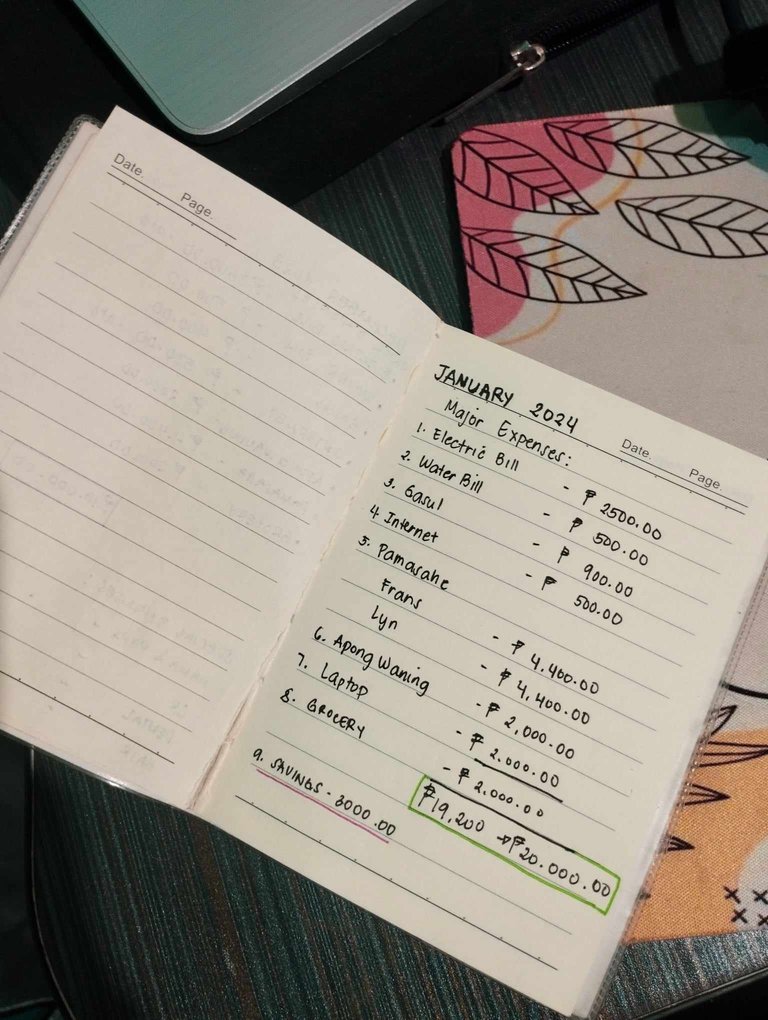 Date.
Page.
JANUARY 2024
Date.
Page.
Major Expenses:
1. Electric Bill - ₱ 2500.00
2. Water Bill - ₱ 500.00
3. Gasul - ₱ 900.00
4. Internet - ₱ 500.00
5. Pamasahe
Frans - ₱ 4,400.00
Lyn - ₱ 4,400.00
6. Apong Waning - ₱ 2,000.00
7. Laptop - ₱ 2.000.00
8. GROCERY - ₱ 2.000.00
₱19,200 → ₱20.000.00
9. SAVINGS - 3000.00